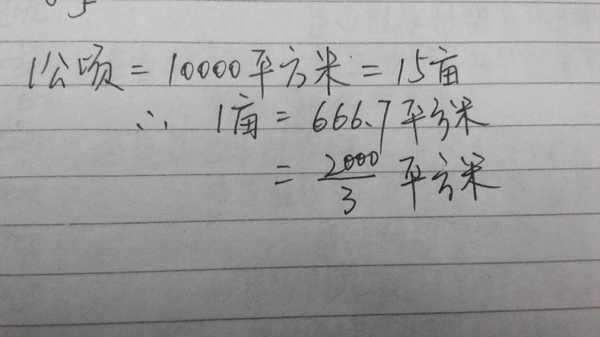 1公顷=10000平方米=15亩
∴ 1亩=666.7平方米
=2000/3平方米